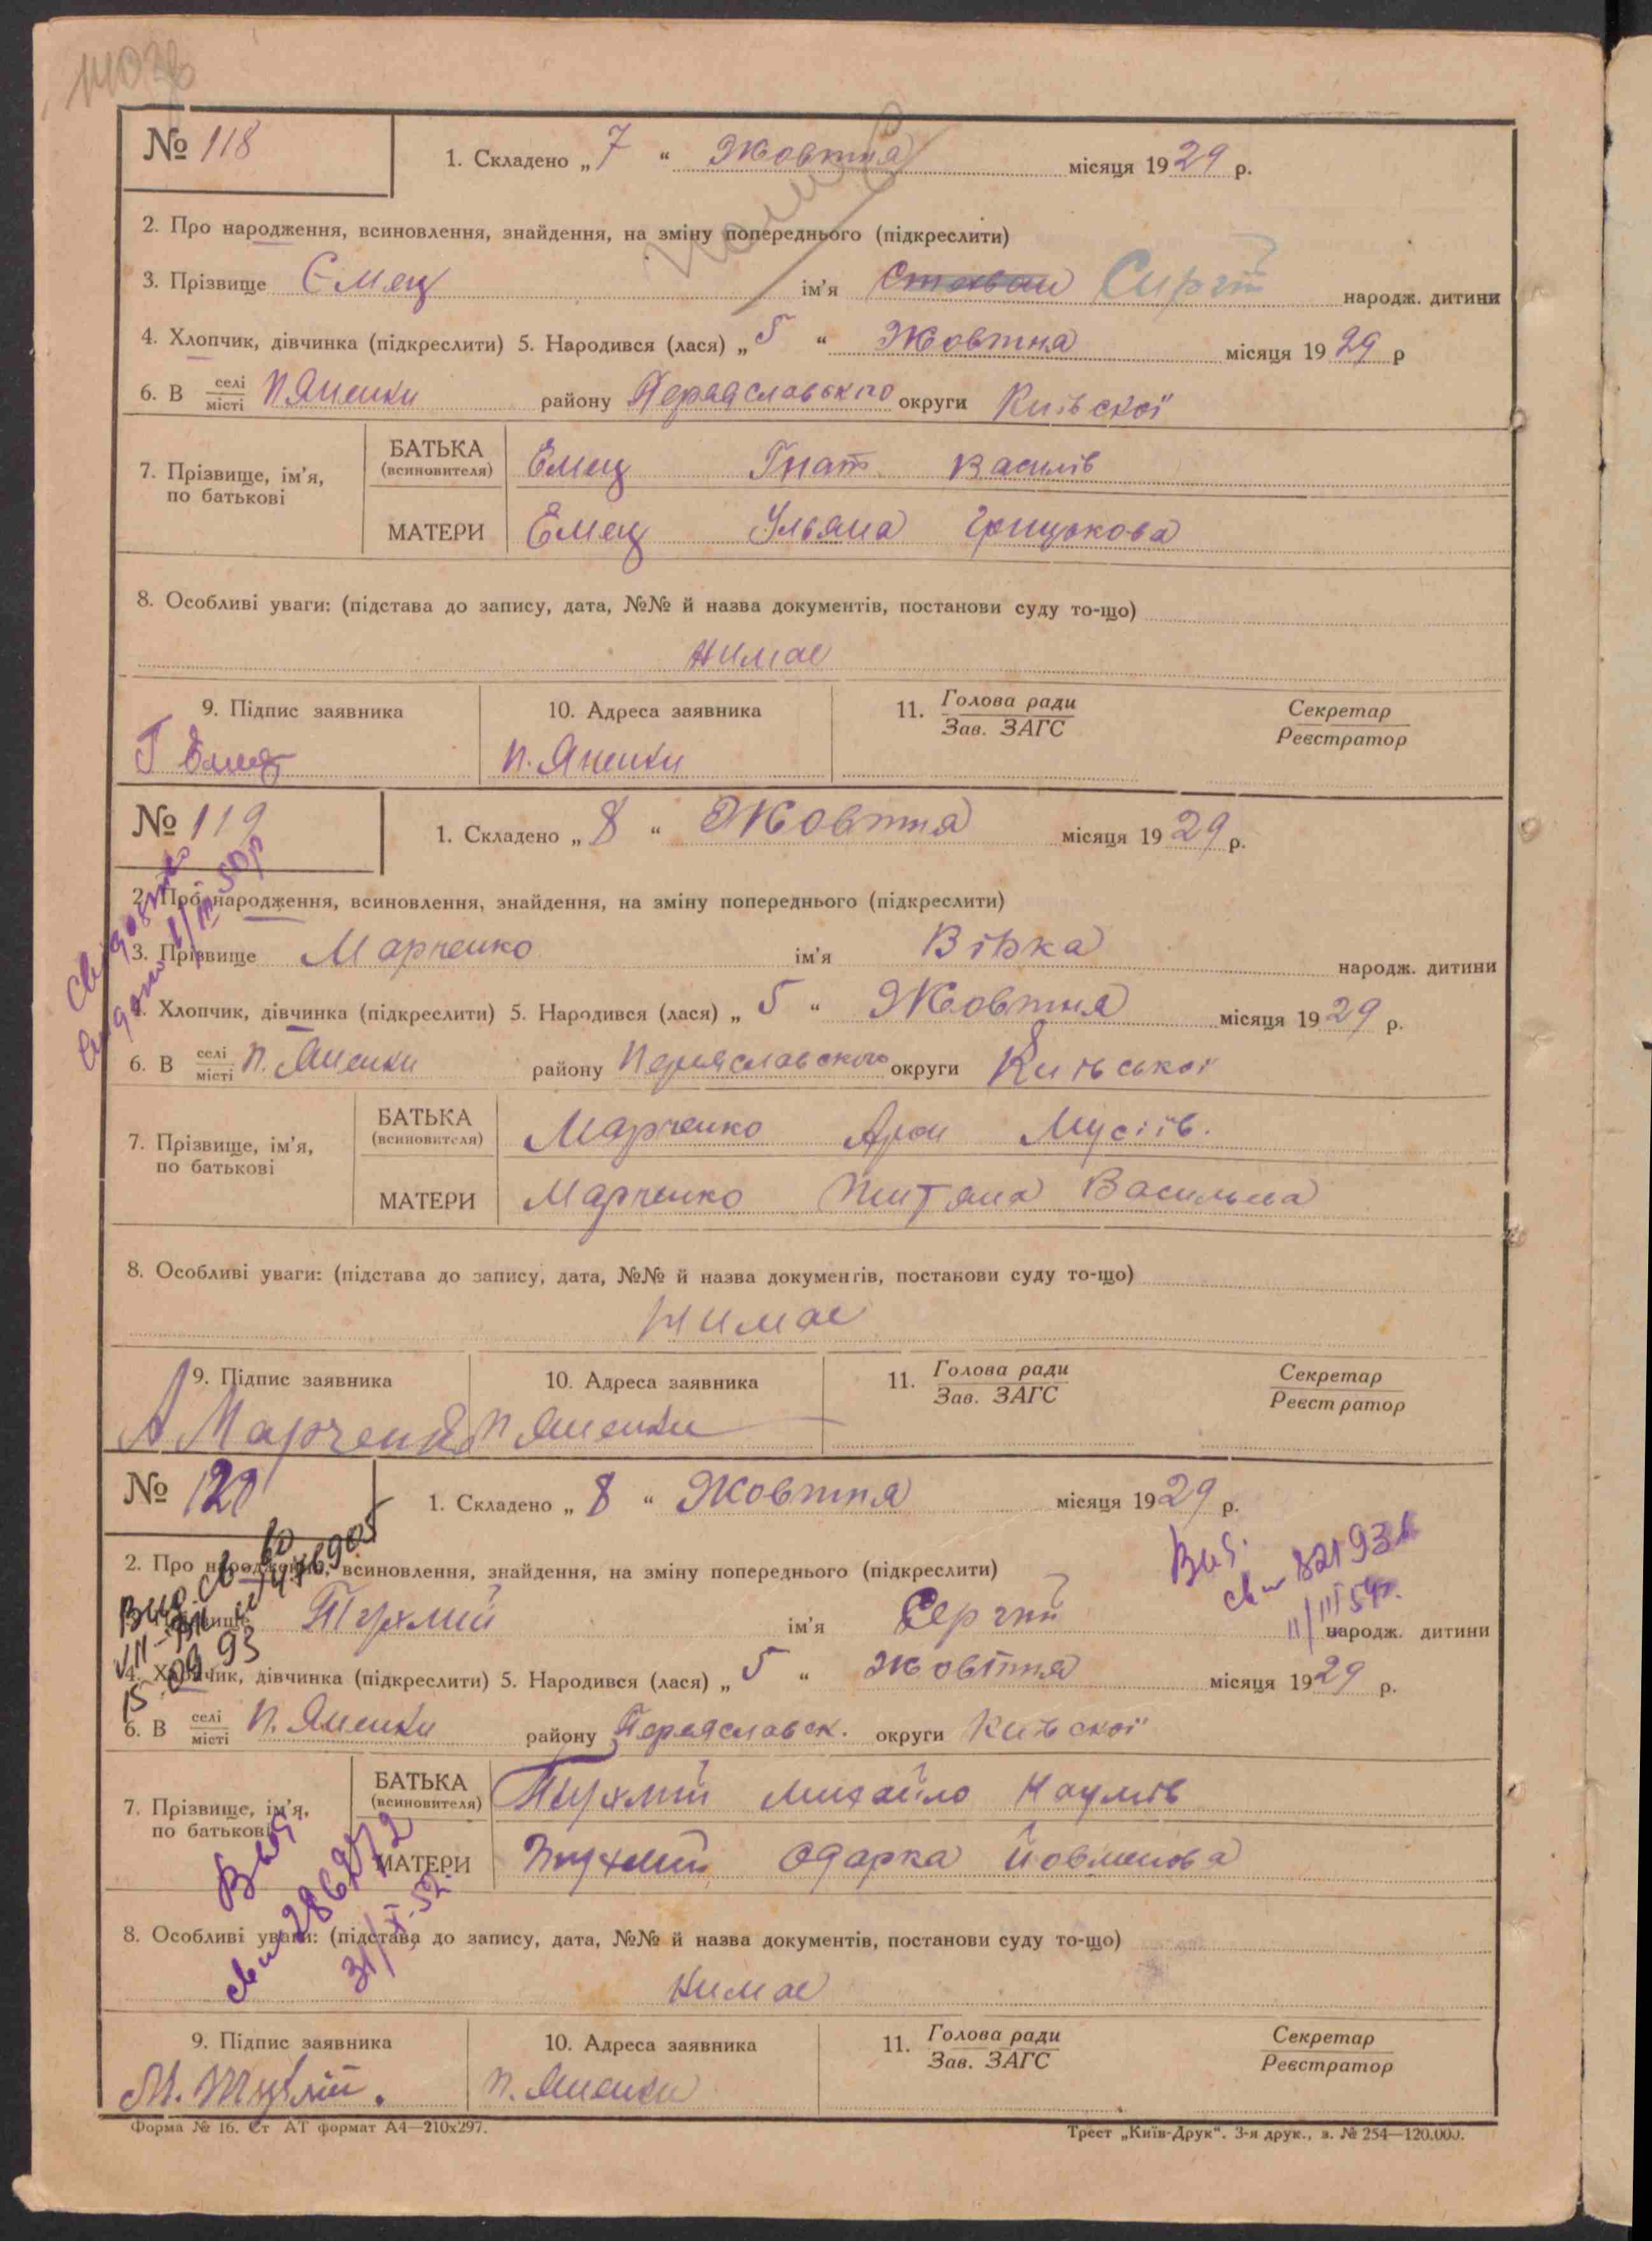 № 118
1. Складено „7“ Жовтня місяця 1929 р.
2. Про народження, всиновлення, знайдення, на зміну попереднього (підкреслити)
3. Прізвище Ємец ім'я Степан Сиргій народж. дитини
4. Хлопчик, дівчинка (підкреслити) 5. Народився (лася) „5“ Жовтня місяця 1929 р
6. В селі місті П. Яненки району Переяславського округи Київскої
7. Прізвище, ім'я, по батькові
БАТЬКА (всиновителя) Емец Гнат Василів
МАТЕРИ Емец Ульяна Грицькова
8. Особливі уваги: (підстава до запису, дата, №№ й назва документів, постанови суду то-що)
Нимає
9. Підпис заявника 10. Адреса заявника 11. Голова ради Зав. ЗАГС Секретар Реєстратор
Г Емец П. Яненки
№ 119
1. Складено „8“ Жовтня місяця 1929 р.
2. Про народження, всиновлення, знайдення, на зміну попереднього (підкреслити)
3. Прізвище Марченко ім'я Вірка народж. дитини
4. Хлопчик, дівчинка (підкреслити) 5. Народився (лася) „5“ Жовтня місяця 1929 р.
6. В селі місті П. Яненки району Переяславского округи Киівської
7. Прізвище, ім'я, по батькові
БАТЬКА (всиновителя) Марченко Арон Мусіїв.
МАТЕРИ Марченко Титяна Васильева
8. Особливі уваги: (підстава до запису, дата, №№ й назва документів, постанови суду то-що)
Нимає
9. Підпис заявника 10. Адреса заявника 11. Голова ради Зав. ЗАГС Секретар Реєстратор
А Марченко П Яненки
№ 120
1. Складено „8“ Жовтня місяця 1929 р.
2. Про народження, всиновлення, знайдення, на зміну попереднього (підкреслити)
Вид. св 821931
II/III 54р.
3. Прізвище Тухлий ім'я Сергий народж. дитини
4. Хлопчик, дівчинка (підкреслити) 5. Народився (лася) „5“ жовтня місяця 1929 р.
15.09.93
6. В селі місті П. Яненки району Переяславск. округи Киівскої
7. Прізвище, ім'я, по батькові
БАТЬКА (всиновителя) Тухлий Михайло Наумів
МАТЕРИ Тухлий Одарка Йовменова
8. Особливі уваги: (підстава до запису, дата, №№ й назва документів, постанови суду то-що)
Нимає
9. Підпис заявника 10. Адреса заявника 11. Голова ради Зав. ЗАГС Секретар Реєстратор
М. Тухлій. П. Яненки
Форма № 16. Ст АТ формат А4—210х297.
Трест „Київ-Друк“. 3-я друк., з. № 254—120.000.